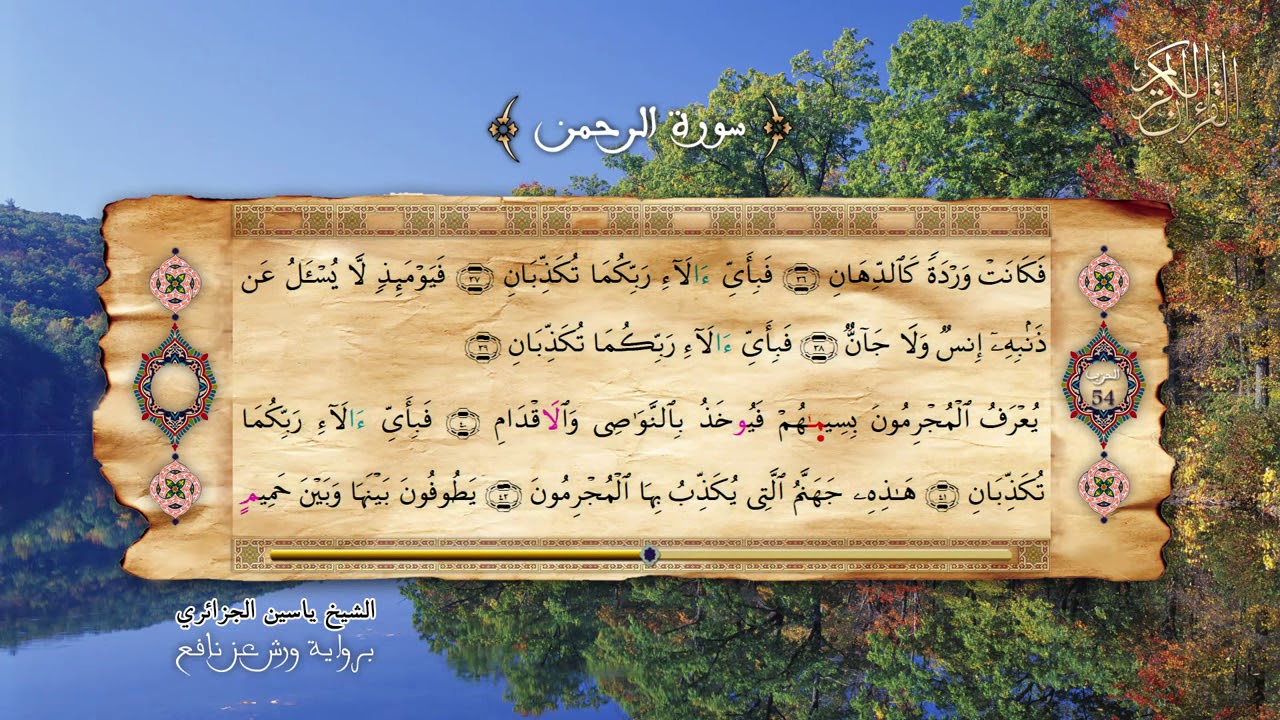 القرآن الكريم
سورة الرحمن
فَكَانَتْ وَرْدَةً كَالدِّهَانِ ٣٦ فَبِأَيِّ ءَالَآءِ رَبِّكُمَا تُكَذِّبَانِ ٣٧ فَيَوْمَئِذٍ لَّا يُسْـَٔلُ عَن
ذَنۢبِهِۦٓ إِنسٌ وَلَا جَآنٌّ ٣٨ فَبِأَيِّ ءَالَآءِ رَبِّكُمَا تُكَذِّبَانِ ٣٩
يُعْرَفُ ٱلْمُجْرِمُونَ بِسِيمَٰهُمْ فَيُوخَذُ بِٱلنَّوَٰصِى وَٱلَاقْدَامِ ٤٠ فَبِأَيِّ ءَالَآءِ رَبِّكُمَا
تُكَذِّبَانِ ٤١ هَٰذِهِۦ جَهَنَّمُ ٱلَّتِى يُكَذِّبُ بِهَا ٱلْمُجْرِمُونَ ٤٢ يَطُوفُونَ بَيْنَهَا وَبَيْنَ حَمِيمٍ
الحزب
54
الشيخ ياسين الجزائري
برواية ورش عن نافع